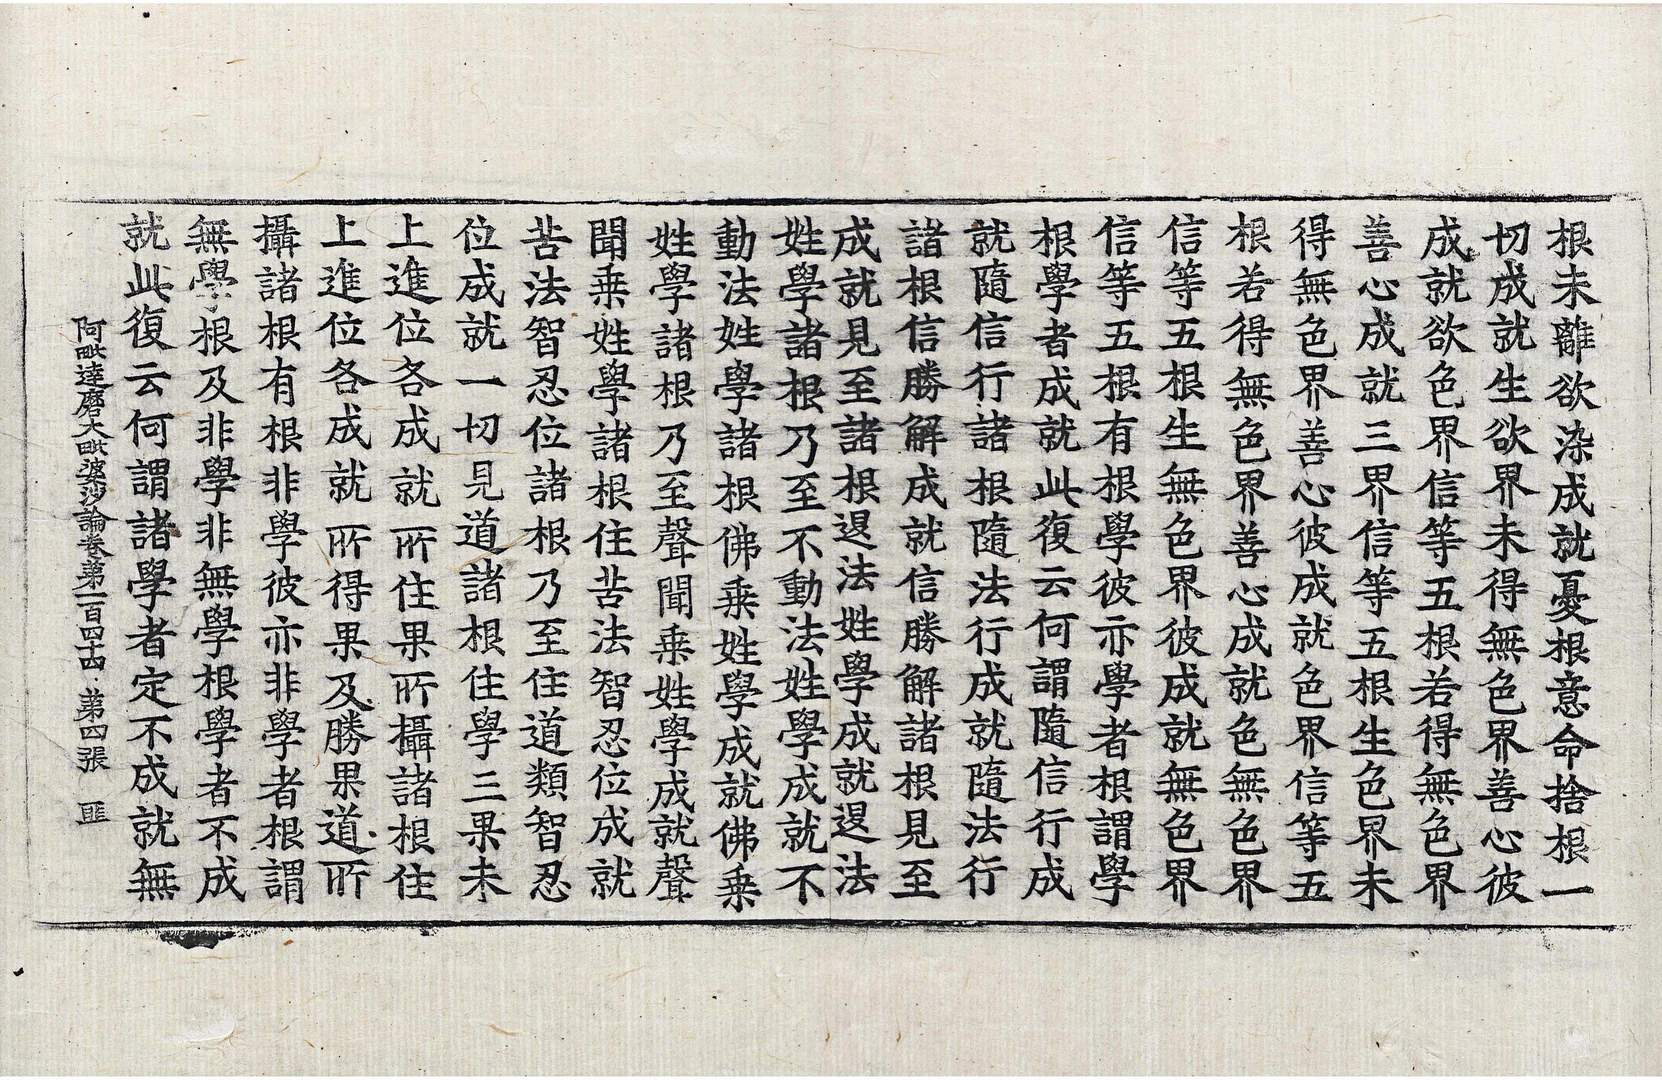 根未離欲染成就憂根意命捨根一
切成就生欲界未得無色界善心彼
成就欲色界信等五根若得無色界
善心成就三界信等五根生色界未
得無色界善心彼成就色界信等五
根若得無色界善心成就色無色界
信等五根生無色界彼成就無色界
信等五根有根學彼亦學者根謂學
根學者成就此復云何謂隨信行成
就隨信行諸根隨法行成就隨法行
諸根信勝解成就信勝解諸根見至
成就見至諸根退法姓學成就退法
姓學諸根乃至不動法姓學成就不
動法姓學諸根佛乗姓學成就佛乗
姓學諸根乃至聲聞乗姓學成就聲
聞乗姓學諸根住苦法智忍位成就
苦法智忍位諸根乃至住道類智忍
位成就一切見道諸根住學三果未
上進位各成就所住果所攝諸根住
上進位各成就所得果及勝果道所
攝諸根有根非學彼亦非學者根謂
無學根及非學非無學根學者不成
就此復云何謂諸學者定不成就無
阿毗達磨大毗婆沙論卷第一百四十四 第四張 匪